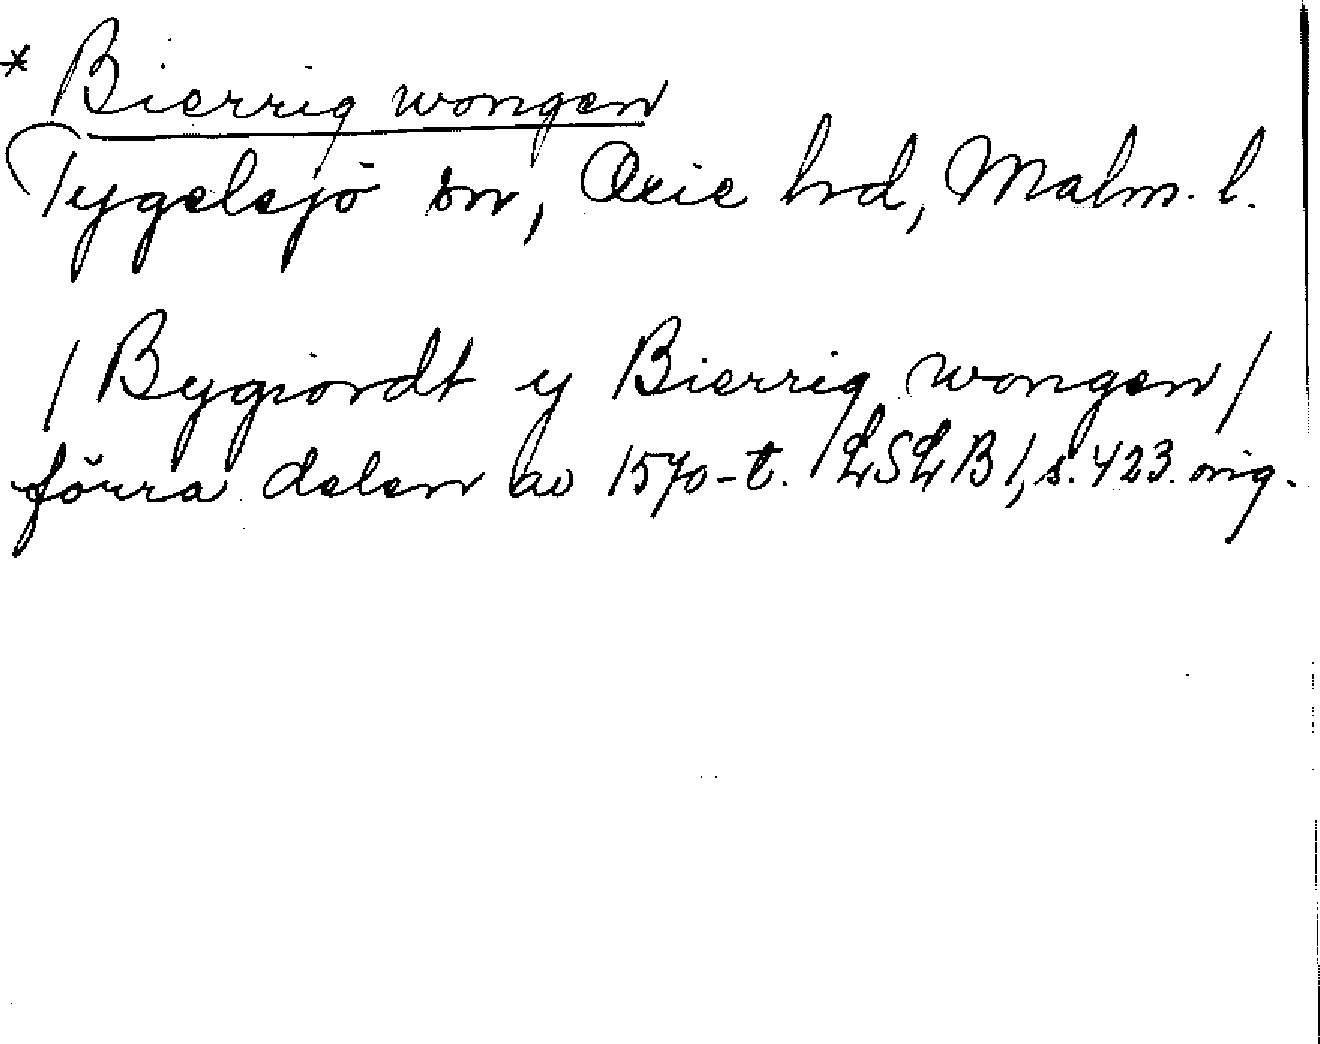 * Bierrig wongen
Tygelsjö sn, Oxie hd, Malm. l.
/ Bygiordt y Bierrig wongen /
förra delen av 1570-t. LSLB 1, s. 423. orig.